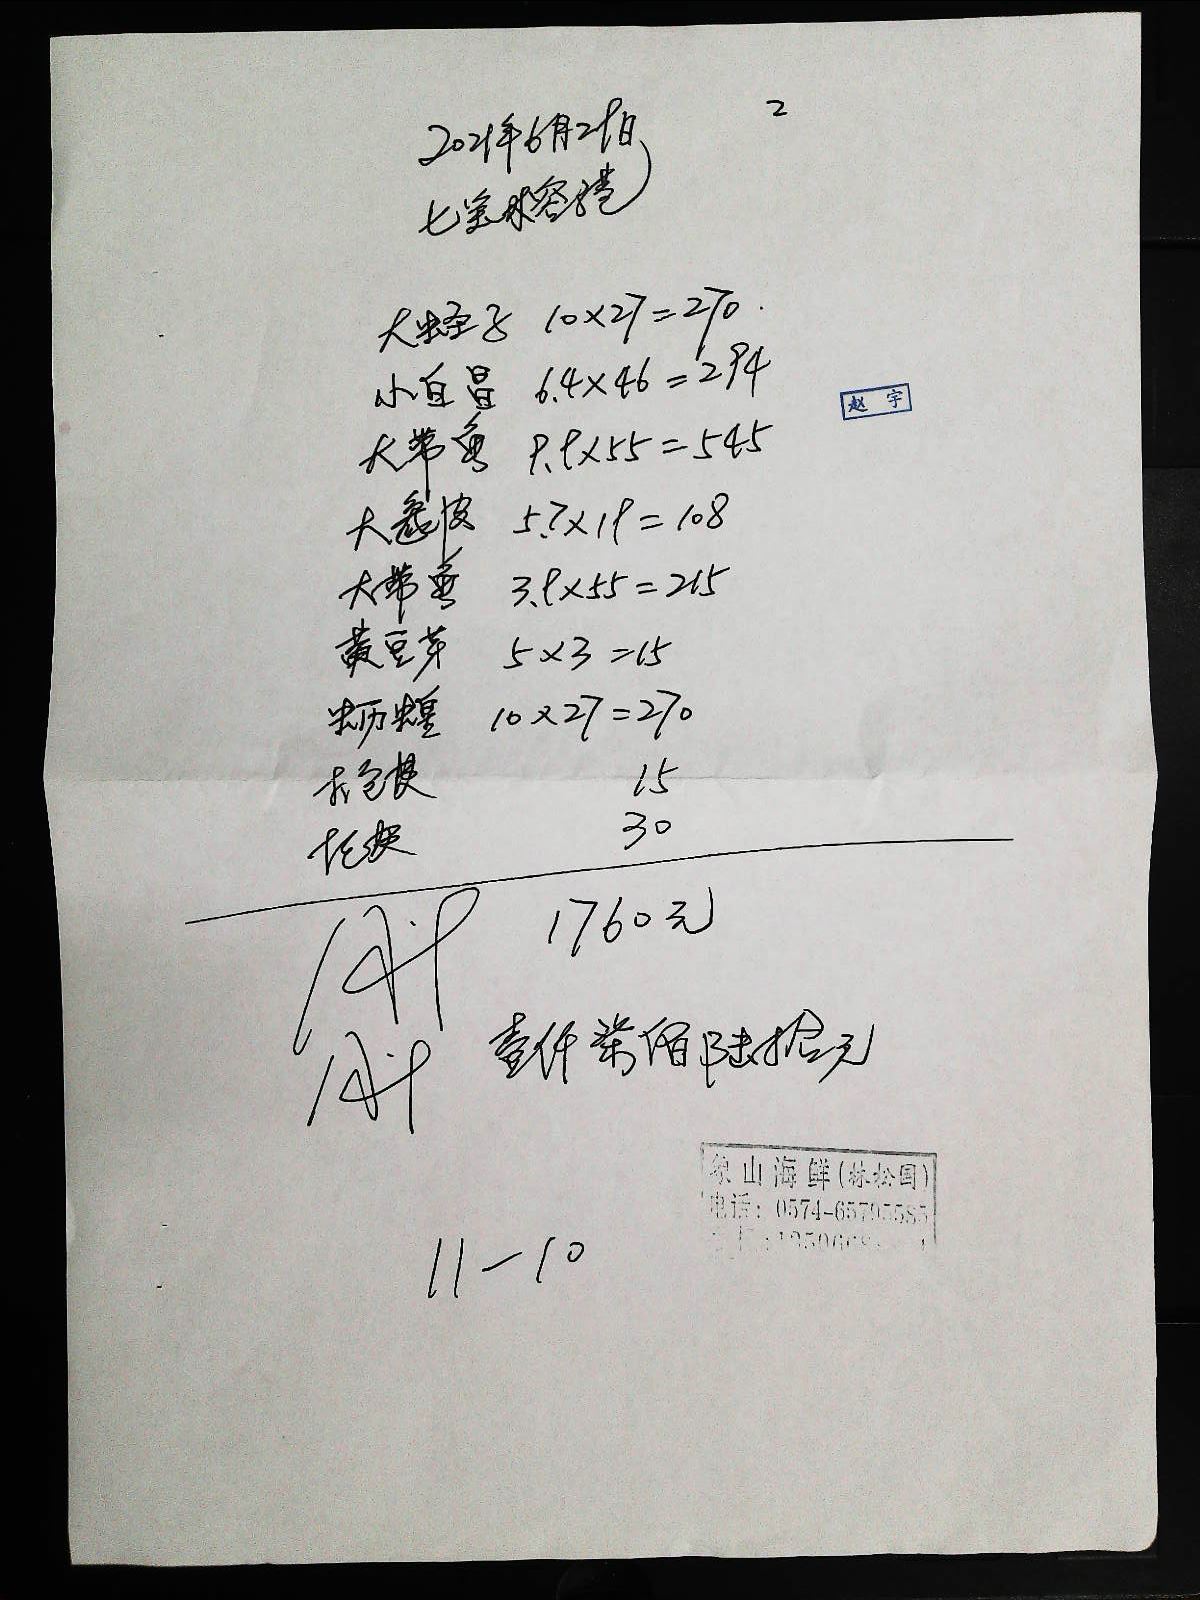 2
2021年6月29日
大蛏子 10×27=270
小白昌 6.4×46=294
赵宇
大带鱼 9.9×55=545
大 皮 5.7×19=108
大带鱼 3.9×55=215
黄豆芽 5×3=15
虫历蝗 10×27=270
15
30
1760元
壹仟柒佰陆拾元
象山海鲜(林松国)
电话: 0574-65795585
11-10